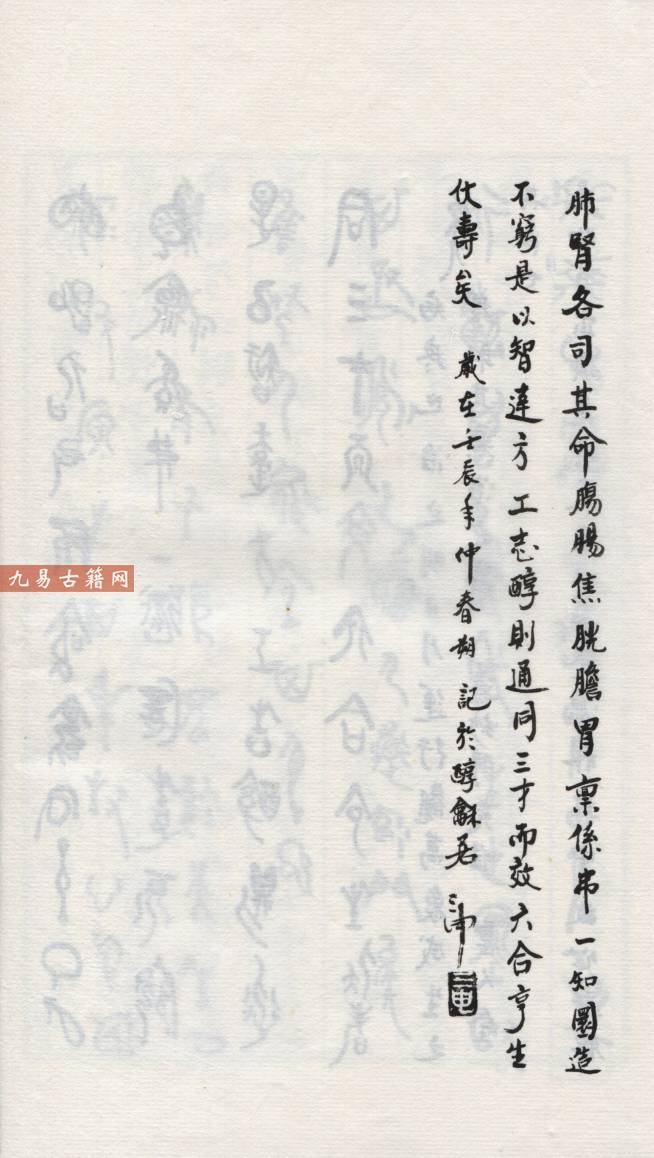 肺腎各司其命腸腸焦胱膽胃稟係弗一知圜造
不窮是以智達方工志醇則通同三才而效六合亨生
伏壽矣 歲在壬辰年仲春朔 記於醇龢居
九易古籍网